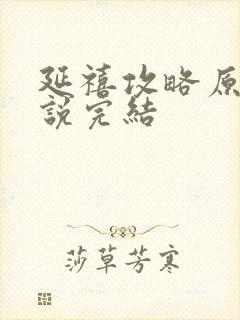 延禧攻略原
說完結
莎草芳寒